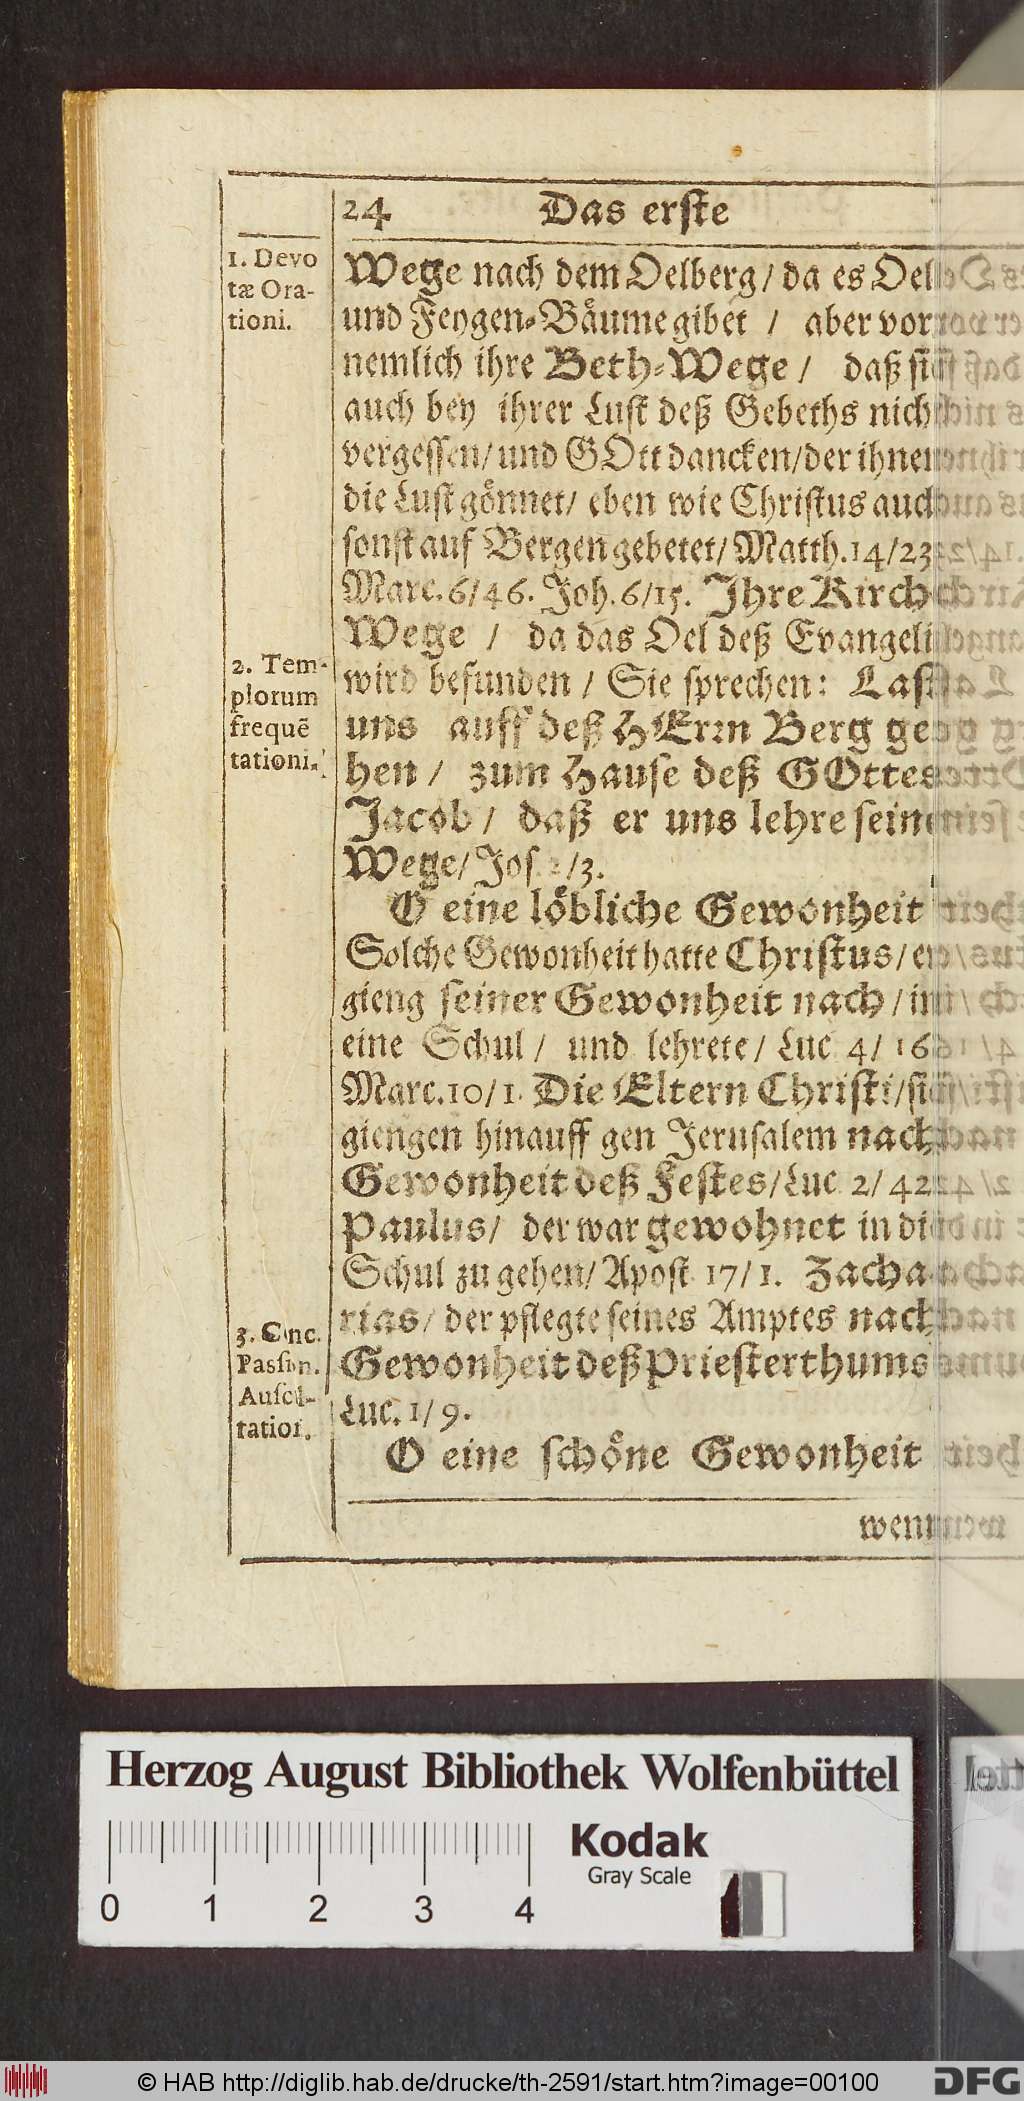 24 Das erste
1. Devo
tæ Ora-
tioni.
Wege nach dem Oelberg / da es Oel
und Feygen-Bäume gibet / aber vor
nemlich ihre Beth-Wege / daß sie
auch bey ihrer Lust deß Gebeths nich
vergessen / und GOtt dancken / der ihnen
die Lust gönnet / eben wie Christus auch
sonst auf Bergen gebetet / Matth. 14 / 23
Marc. 6 / 46. Joh. 6 / 15. Ihre Kirch
Wege / da das Oel deß Evangeli
2. Tem-
plorum
frequē
tationi.
wird befunden / Sie sprechen: Last
uns auff deß HErrn Berg ge
hen / zum Hause deß GOttes
Jacob / daß er uns lehre seine
Wege / Jos. 2 / 3.
O eine löbliche Gewonheit
Solche Gewonheit hatte Christus / er
gieng seiner Gewonheit nach / in
eine Schul / und lehrete / Luc 4 / 16
Marc. 10 / 1. Die Eltern Christi / sie
giengen hinauff gen Jerusalem nach
Gewonheit deß Festes / Luc 2 / 42
Paulus / der war gewohnet in die
Schul zu gehen / Apost. 17 / 1. Zacha
rias / der pflegte seines Amptes nach
3. Conc.
Passion.
Auscul-
tation.
Gewonheit deß Priesterthums
Luc. 1 / 9.
O eine schöne Gewonheit
wenn
Herzog August Bibliothek Wolfenbüttel
Kodak
Gray Scale
0 1 2 3 4
© HAB http://diglib.hab.de/drucke/th-2591/start.htm?image=00100
DFG